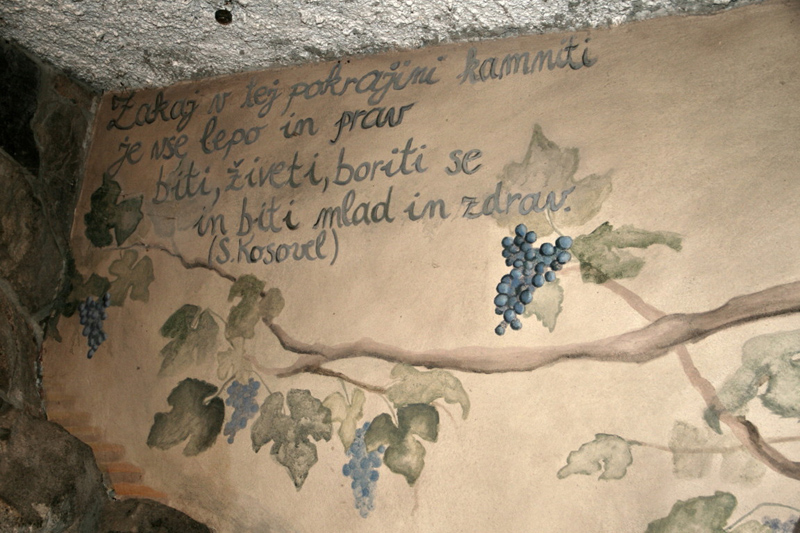 Zakaj v tej pokrajini kamniti
je vse lepo in prav
biti, živeti, boriti se
in biti mlad in zdrav.
(S. Kosovel)